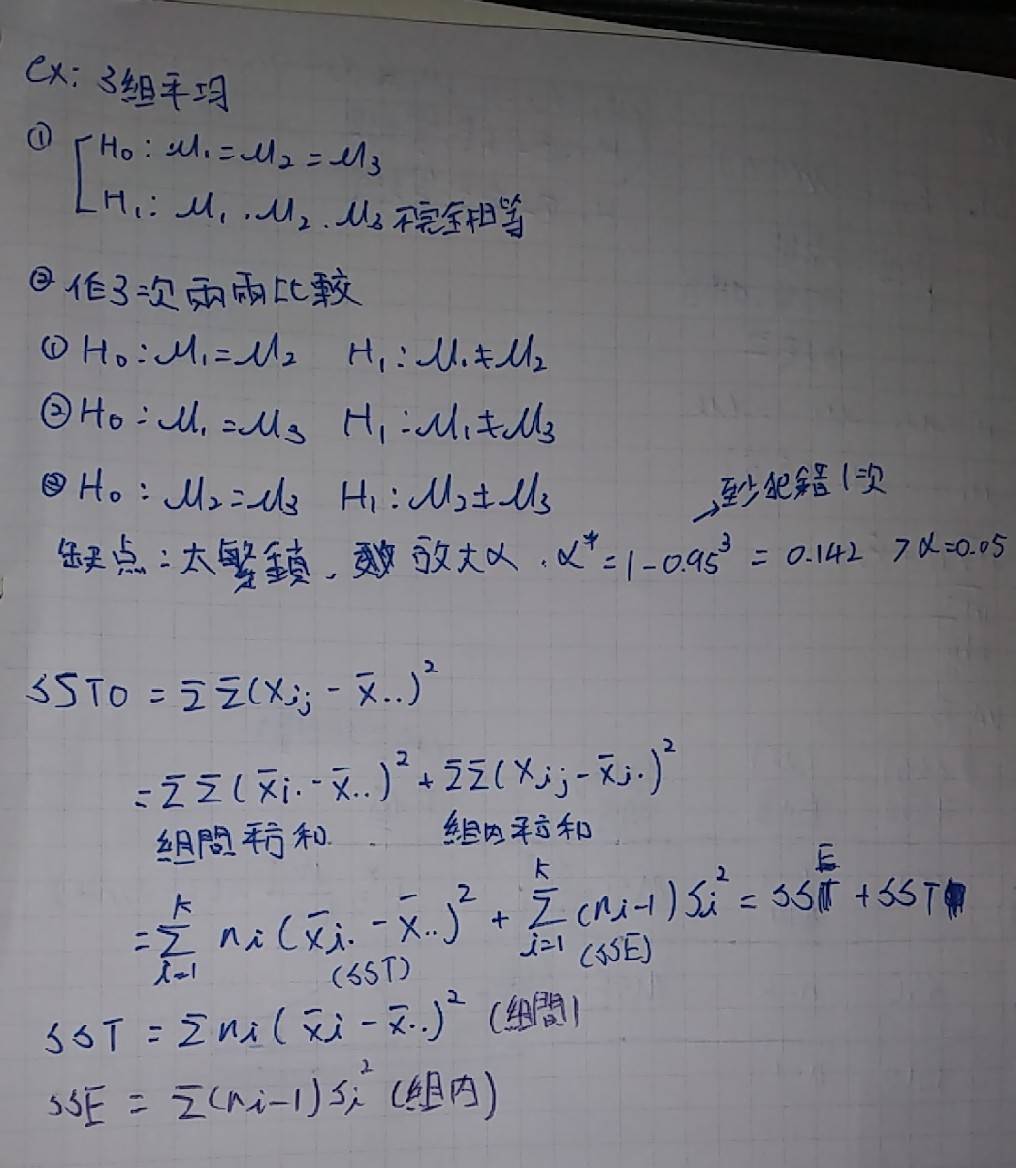 ex: 3組平均
① H₀: μ₁=μ₂=μ₃
H₁: μ₁.μ₂.μ₃不完全相等
② 作3次兩兩比較
① H₀:μ₁=μ₂ H₁:μ₁≠μ₂
② H₀:μ₁=μ₃ H₁:μ₁≠μ₃
③ H₀:μ₂=μ₃ H₁:μ₂≠μ₃
→至少犯錯1次
缺点:太繁鎖、放大α.α*=1-0.95³=0.142>α=0.05
SSTO=ΣΣ(xᵢⱼ-x̄..)²
=ΣΣ(x̄i.-x̄..)²+ΣΣ(xᵢⱼ-x̄j.)²
組間平方和 組内平方和
=Σᵢ₌₁ᵏ nᵢ(x̄ᵢ.-x̄..)²+Σᵢ₌₁ᵏ(nᵢ-1)Sᵢ²=SSE+SST
(SST) (SSE)
SST=Σnᵢ(x̄ᵢ-x̄..)² (組間)
SSE=Σ(nᵢ-1)Sᵢ² (組内)